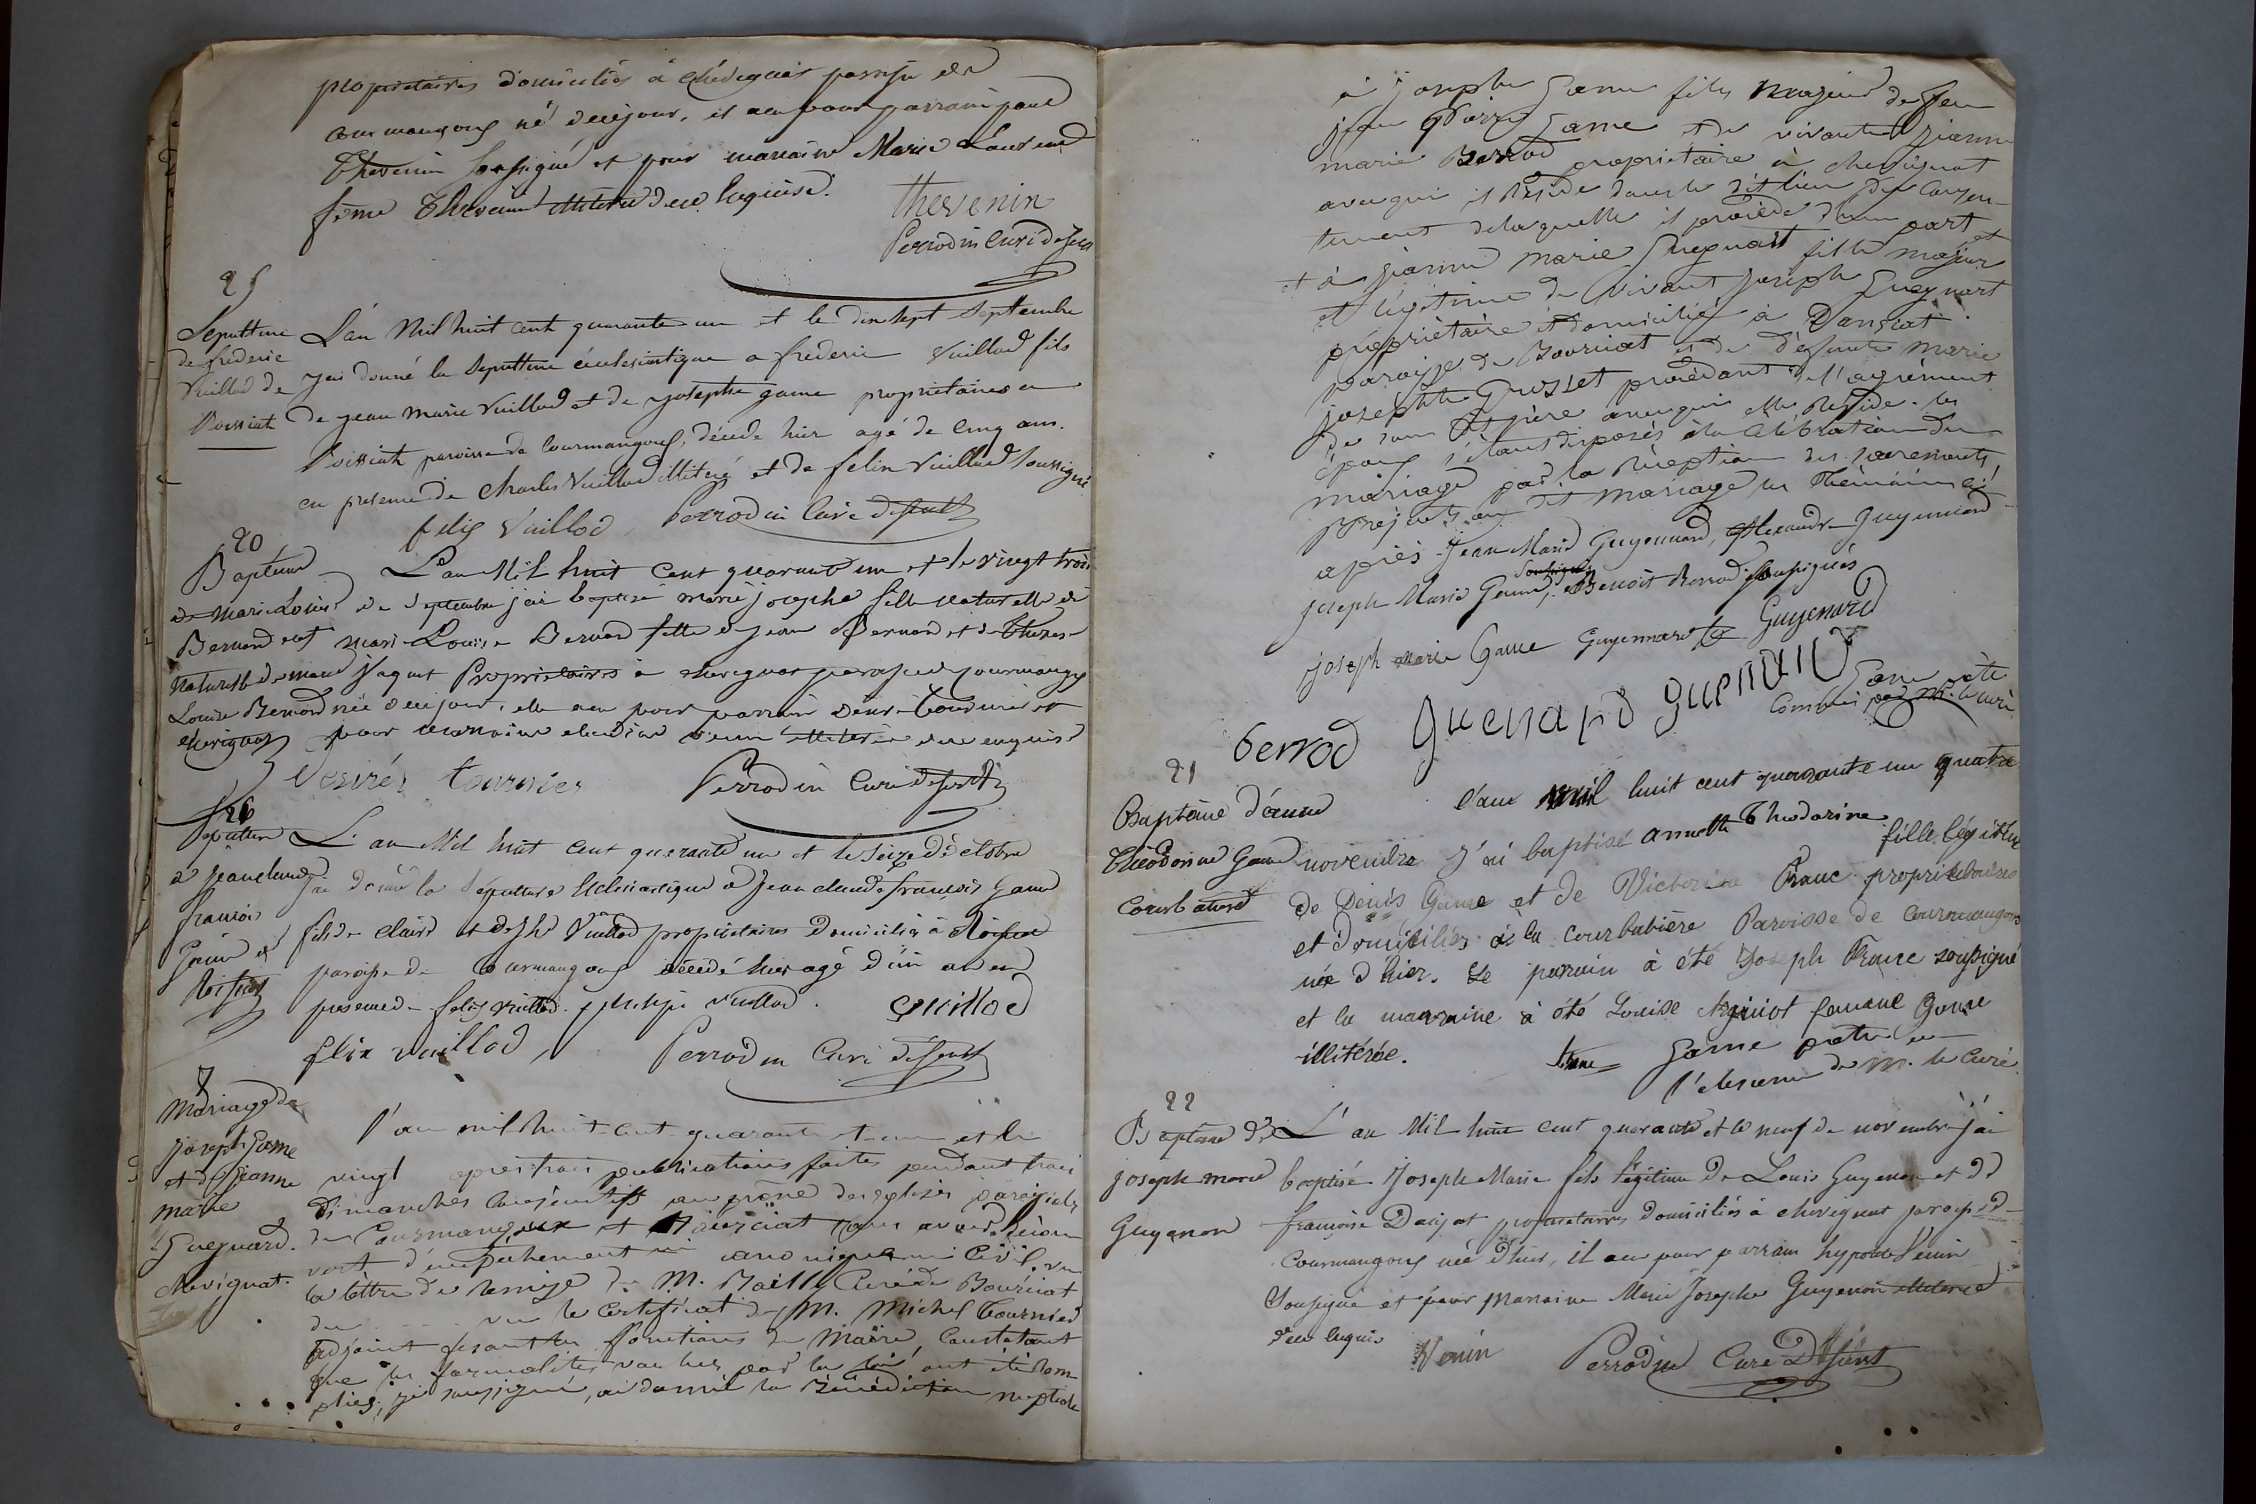 propriétaires domiciliés à chevignat paroisse de
Courmangoux né de ce jour, il a eu pour parrain paul
Thevenin soussigné et pour marraine Marie Laurend
feme Thevenin illiterée de ce enquise.
thevenin
Perrodin Curé desert
25
Sepulture
de frederic
Vuillod de
Roissiat
L'an Mil huit cent quarante un et le dix sept Septembre
j'ai donné la sepulture écclesiastique a frederic Vuillod fils
de jean marie Vuillod et de josephe game proprietaires a
Roissiat paroisse de Courmangoux, décédé hier agé de cinq ans.
en presence de Charles Vuillod illiteré et de felix Vuillod soussigné.
felix Vuillod Perrodin Curé desert
20
Bapteme
de marie Louise
Bernard
naturelle de marie
Louise Bernard
chevignat
L'an Mil huit cent quarante un et le vingt trois
de septembre j'ai baptisé marie josephe fille naturelle de
marie Louise Bernard fille de jean Bernard et de Therese
jaquet Propriétaires à chevignat paroisse de Courmangoux
née de ce jour, elle a eu pour parrain Désiré tournier et
pour marraine claudine venin illiterée de ce enquise
Desirée tournier Perrodin Curé desert
26
Sepulture
à jean claude
francois
Game de
Roissiat
L'an Mil huit cent quarante un et le seize d'octobre
j'ai donné la sépulture Ecclesiastique à Jean claude françois Game
fils de claude et de Vuillod propriétaires domiciliés à Roissiat
paroisse de Courmangoux décédé hier agé d'un an en
presence de felix vuillod. philipe vuillod. Cvuillod
félix vuillod, Perrodin Curé desert
7
Mariage de
joseph Game
et de jeanne
marie
Guegnard.
chevignat.
l'an mil huit cent quarante et un et le
vingt après trois publications faites pendant trois
dimanches consécutifs au prône des eglises paroissiales
de Courmangoux et sans avoir découvert
d'empechement ni canonique ni civil, vu
la lettre de remise de M. Bailly Curé de
du ..... vu le certificat de M. Michel Tournier
adjoint fesant les fonctions de Maire, Constatant
que les formalités voulues par la loi ont été rem-
plies; je soussigné, ai donné la Bénédiction nuptiale
à joseph Game fils majeur de feu
jean Pierre Game et de vivante jeanne
marie Berrod propriétaire à chevignat
avec qui il réside dans le dit lieu du consen-
tement de laquelle il procède d'une part
et à jeanne marie Guegnart fille majeure et
et légitime de vivant joseph Guegnart
propriétaire et domicilié à Dansiat
paroisse de et de défunte marie
josephte Grosset procédant de l'agrément
de son père avec qui elle réside. les
époux s'étant disposés à la célébration du
mariage par la réception des sacrements,
présents au dit mariage les témoins ci
après Jean Marie Guyennard, Alexandre Guyennard
joseph Marie Game, soussigné Benoit Berrod soussignés
joseph marie Game Guyennard Guyenard
berrod guenard guenard
Game ptre
Commis par Mr. le curé
21
Baptême d'anne
théodorine Game
Courbatiere
l'an mil huit cent quarante un quatre
novembre j'ai baptisé annette théodorine fille légitime
de Denis Game et de Victorine Franc propriétaires
et domiciliés à la courbatière Paroisse de Courmangoux
née d'hier. Le parrain à été Joseph Franc soussigné
et la marraine à été Louise femme Game
illitérée.
franc Game ptre en
l'absence de M. le Curé.
22
Bapteme de
joseph marie
Guyenon
L'an Mil huit cent quarante et le neuf de novembre j'ai
baptisé Joseph Marie fils légitime de Louis Guyenon et de
françoise Darjat propriétaires domiciliés à chevignat paroisse de
Courmangoux né d'hier, il a eu pour parrain hypolite Vénin
soussigné et pour marraine Marie Josephe Guyenon illiterée
de ce enquis
Venin Perrodin Curé Desert